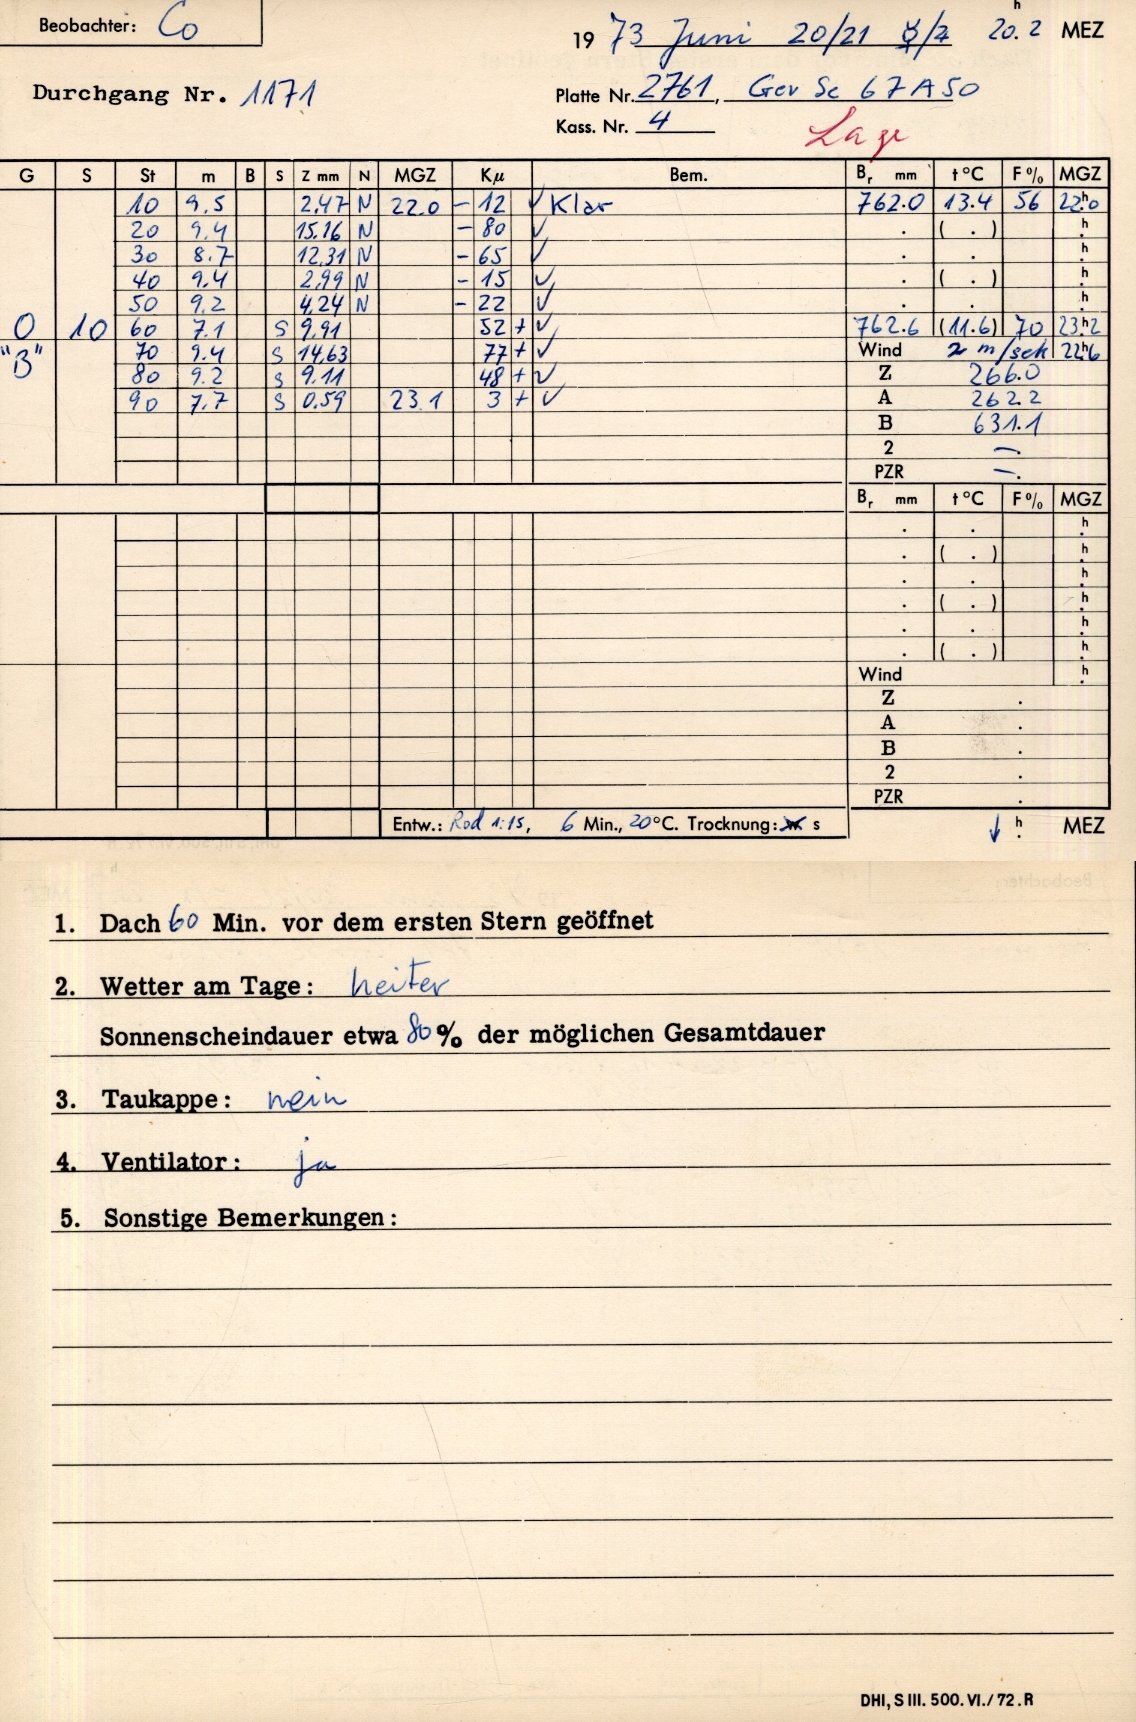 Beobachter: Co
19 73 Juni 20/21 ☿/♃ 20.2 h MEZ
Durchgang Nr. 1171
Platte Nr. 2761, Gev Sc 67A50
Kass. Nr. 4
Lage
G S St m B S Z mm N MGZ Kμ Bem. Br mm t °C F % MGZ
10 9.5 2,47 N 22.0 − 12 ✓ Klar 762.0 13.4 56 22h.0
20 9.4 15.16 N − 80 ✓ . ( . ) h
30 8.7 12,31 N − 65 ✓ . . h
40 9.4 2,99 N − 15 ✓ . ( . ) h
50 9.2 4,24 N − 22 ✓ . . h
O 10 60 7.1 S 9,91 52 + ✓ 762.6 (11.6) 70 23h.2
"B" 70 9.4 S 14,63 77 + ✓ Wind 2 m/sek 22h.6
80 9.2 S 9.11 48 + ✓ Z 266.0
90 7.7 S 0.59 23.1 3 + ✓ A 262.2
B 631.1
2 —.
PZR —.
Br mm t °C F % MGZ
. . h
. ( . ) h
. . h
. ( . ) h
. . h
. ( . ) h
Wind h
Z .
A .
B .
2 .
PZR .
Entw.: Rod 1:15, 6 Min., 20 °C. Trocknung: s ↓ h MEZ
1. Dach 60 Min. vor dem ersten Stern geöffnet
2. Wetter am Tage: heiter
Sonnenscheindauer etwa 80 % der möglichen Gesamtdauer
3. Taukappe: nein
4. Ventilator: ja
5. Sonstige Bemerkungen:
DHI, S III. 500. VI./72. R